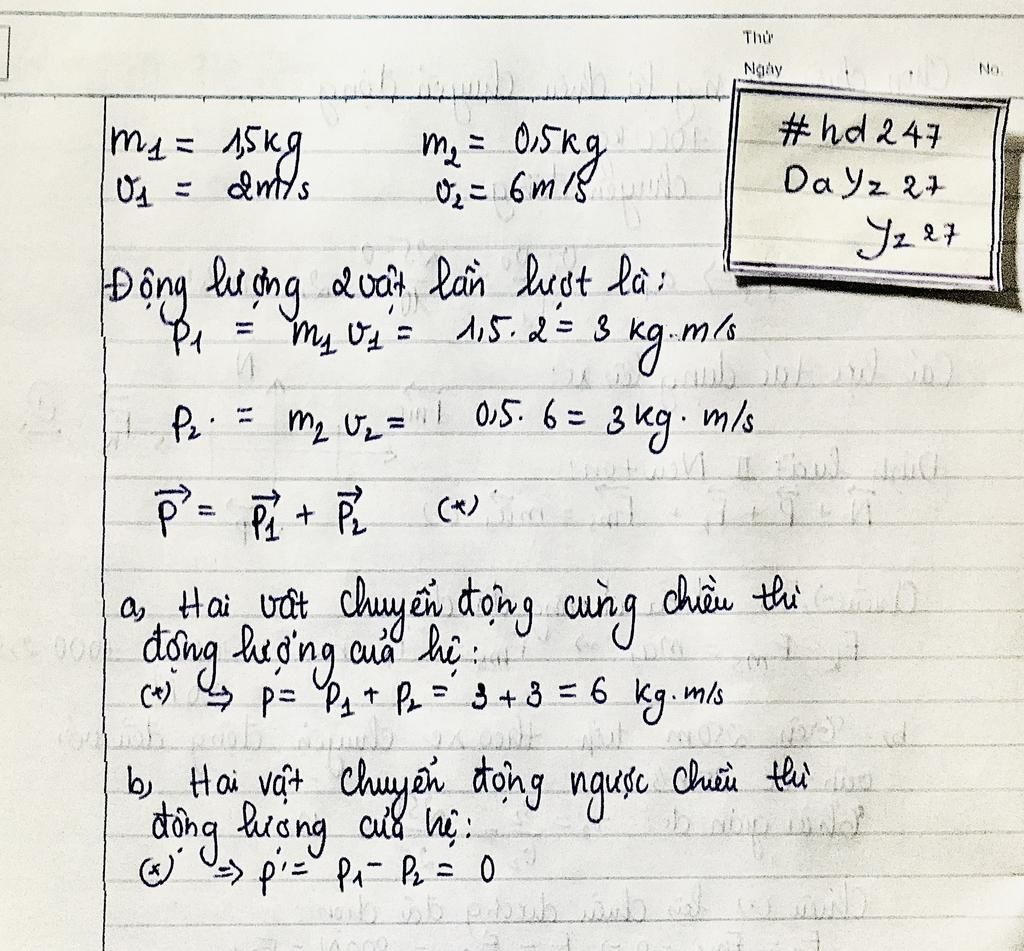 Thứ
Ngày
No.
#hd247
DaYz 27
Yz 27
m₁ = 1,5kg m₂ = 0,5kg
v₁ = 2m/s v₂ = 6m/s
Động lượng 2 vật lần lượt là:
p₁ = m₁ v₁ = 1,5. 2 = 3 kg.m/s
p₂. = m₂ v₂ = 0,5. 6 = 3 kg. m/s
p⃗ = p⃗₁ + p⃗₂ (*)
a, Hai vật chuyển động cùng chiều thì
động lượng của hệ:
(*) ⇒ p = p₁ + p₂ = 3 + 3 = 6 kg.m/s
b, Hai vật chuyển động ngược chiều thì
động lượng của hệ:
(*) ⇒ p' = p₁ - p₂ = 0